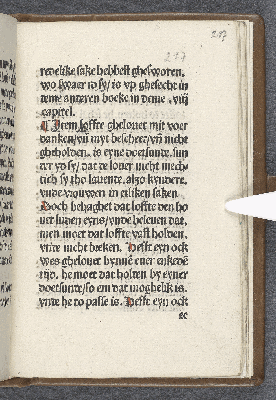 217
217
redelike sake hebbest ghesworen.
wo swaer id sy/ is vp ghesecht in
deme anderen boeke in deme. viij
capitel.
¶ Item loffte ghelouet mit voer
danken/vñ myt bescheet/vñ nicht
gheholden. is eyne doetsunde. sun
der yd sy/ dat de louer nicht mech
tich sy tho lauende. also kyndere.
vnde vrouwen in etliken saken.
Doch behaghet dat loffte den ho
uet luden eyns/vnde beleuen dat.
men moet dat loffte vast holden.
vnde nicht breken. Hefft eyn ock
wes ghelouet bynnē ener enkedē
tijd. he moet dat holden by eyner
doetsunde/so em dat moghelik is.
vnde he to passe is. Hefft eyn ock
ec